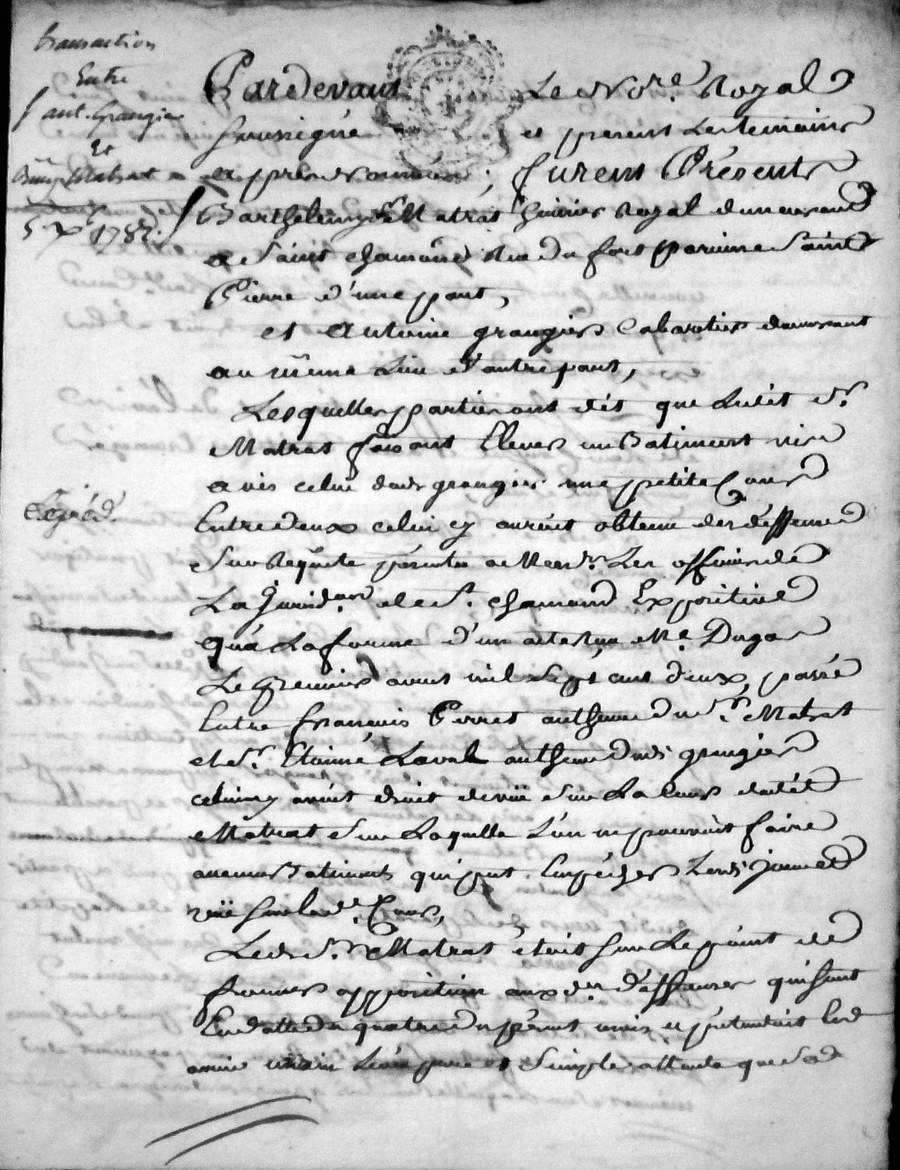 transaction
Entre
ant. Grangier
Et
Matrat
5. Xbre 1782.
Pardevant Le Nore. Royal
soussigné et présents Les temoins
après nommés; furent Présents
Barthelemy Matrat huissier Royal demeurant
a Saint chamond Rue du fort parroisse Saint
Pierre d'une part,
et Antoine grangier Cabartier demeurant
au même Lieu d'autre part,
Lesquelles parties ont dit que Ledit Sr.
Matrat faisant Elever un Batiment vis
a vis celui dud. grangier une petite Cour
Entre deux celui cy auroit obtenu des deffenses
Sur Requete a Mesrs. Les officiers de
La Juridon. de St. chamond Expositive
qu'à La forme d'un acte Reçu Me. Dugas
Le premier avril mil Sept cent deux, passé
Entre françois Perret autheur du Sr. Matrat
et Sr. Etienne Laval autheur dudt. grangier
celui cy avoit droit de vüe Sur La Cour dudt.
Matrat Sur Laquelle L'on ne pouvoit faire
aucuns Batiments qui put Empécher Lesd. jours et
vüe Sur lade. Cour,
Led. Sr. Matrat étoit Sur Le point de
former opposition aux des. deffenses qui Sont
En datte du quatre du présent mois et
pure et Simple attendu que
Expéd.